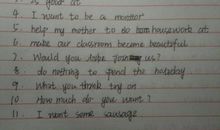 3. is good at
4. I want to be a monitor
5. help my mother to do housework at
6. make our classroom become beautiful
7. Would you us?
8. do nothing to spend the holiday
9. What you think try on
10 How much do you want?
11. I want some sausage